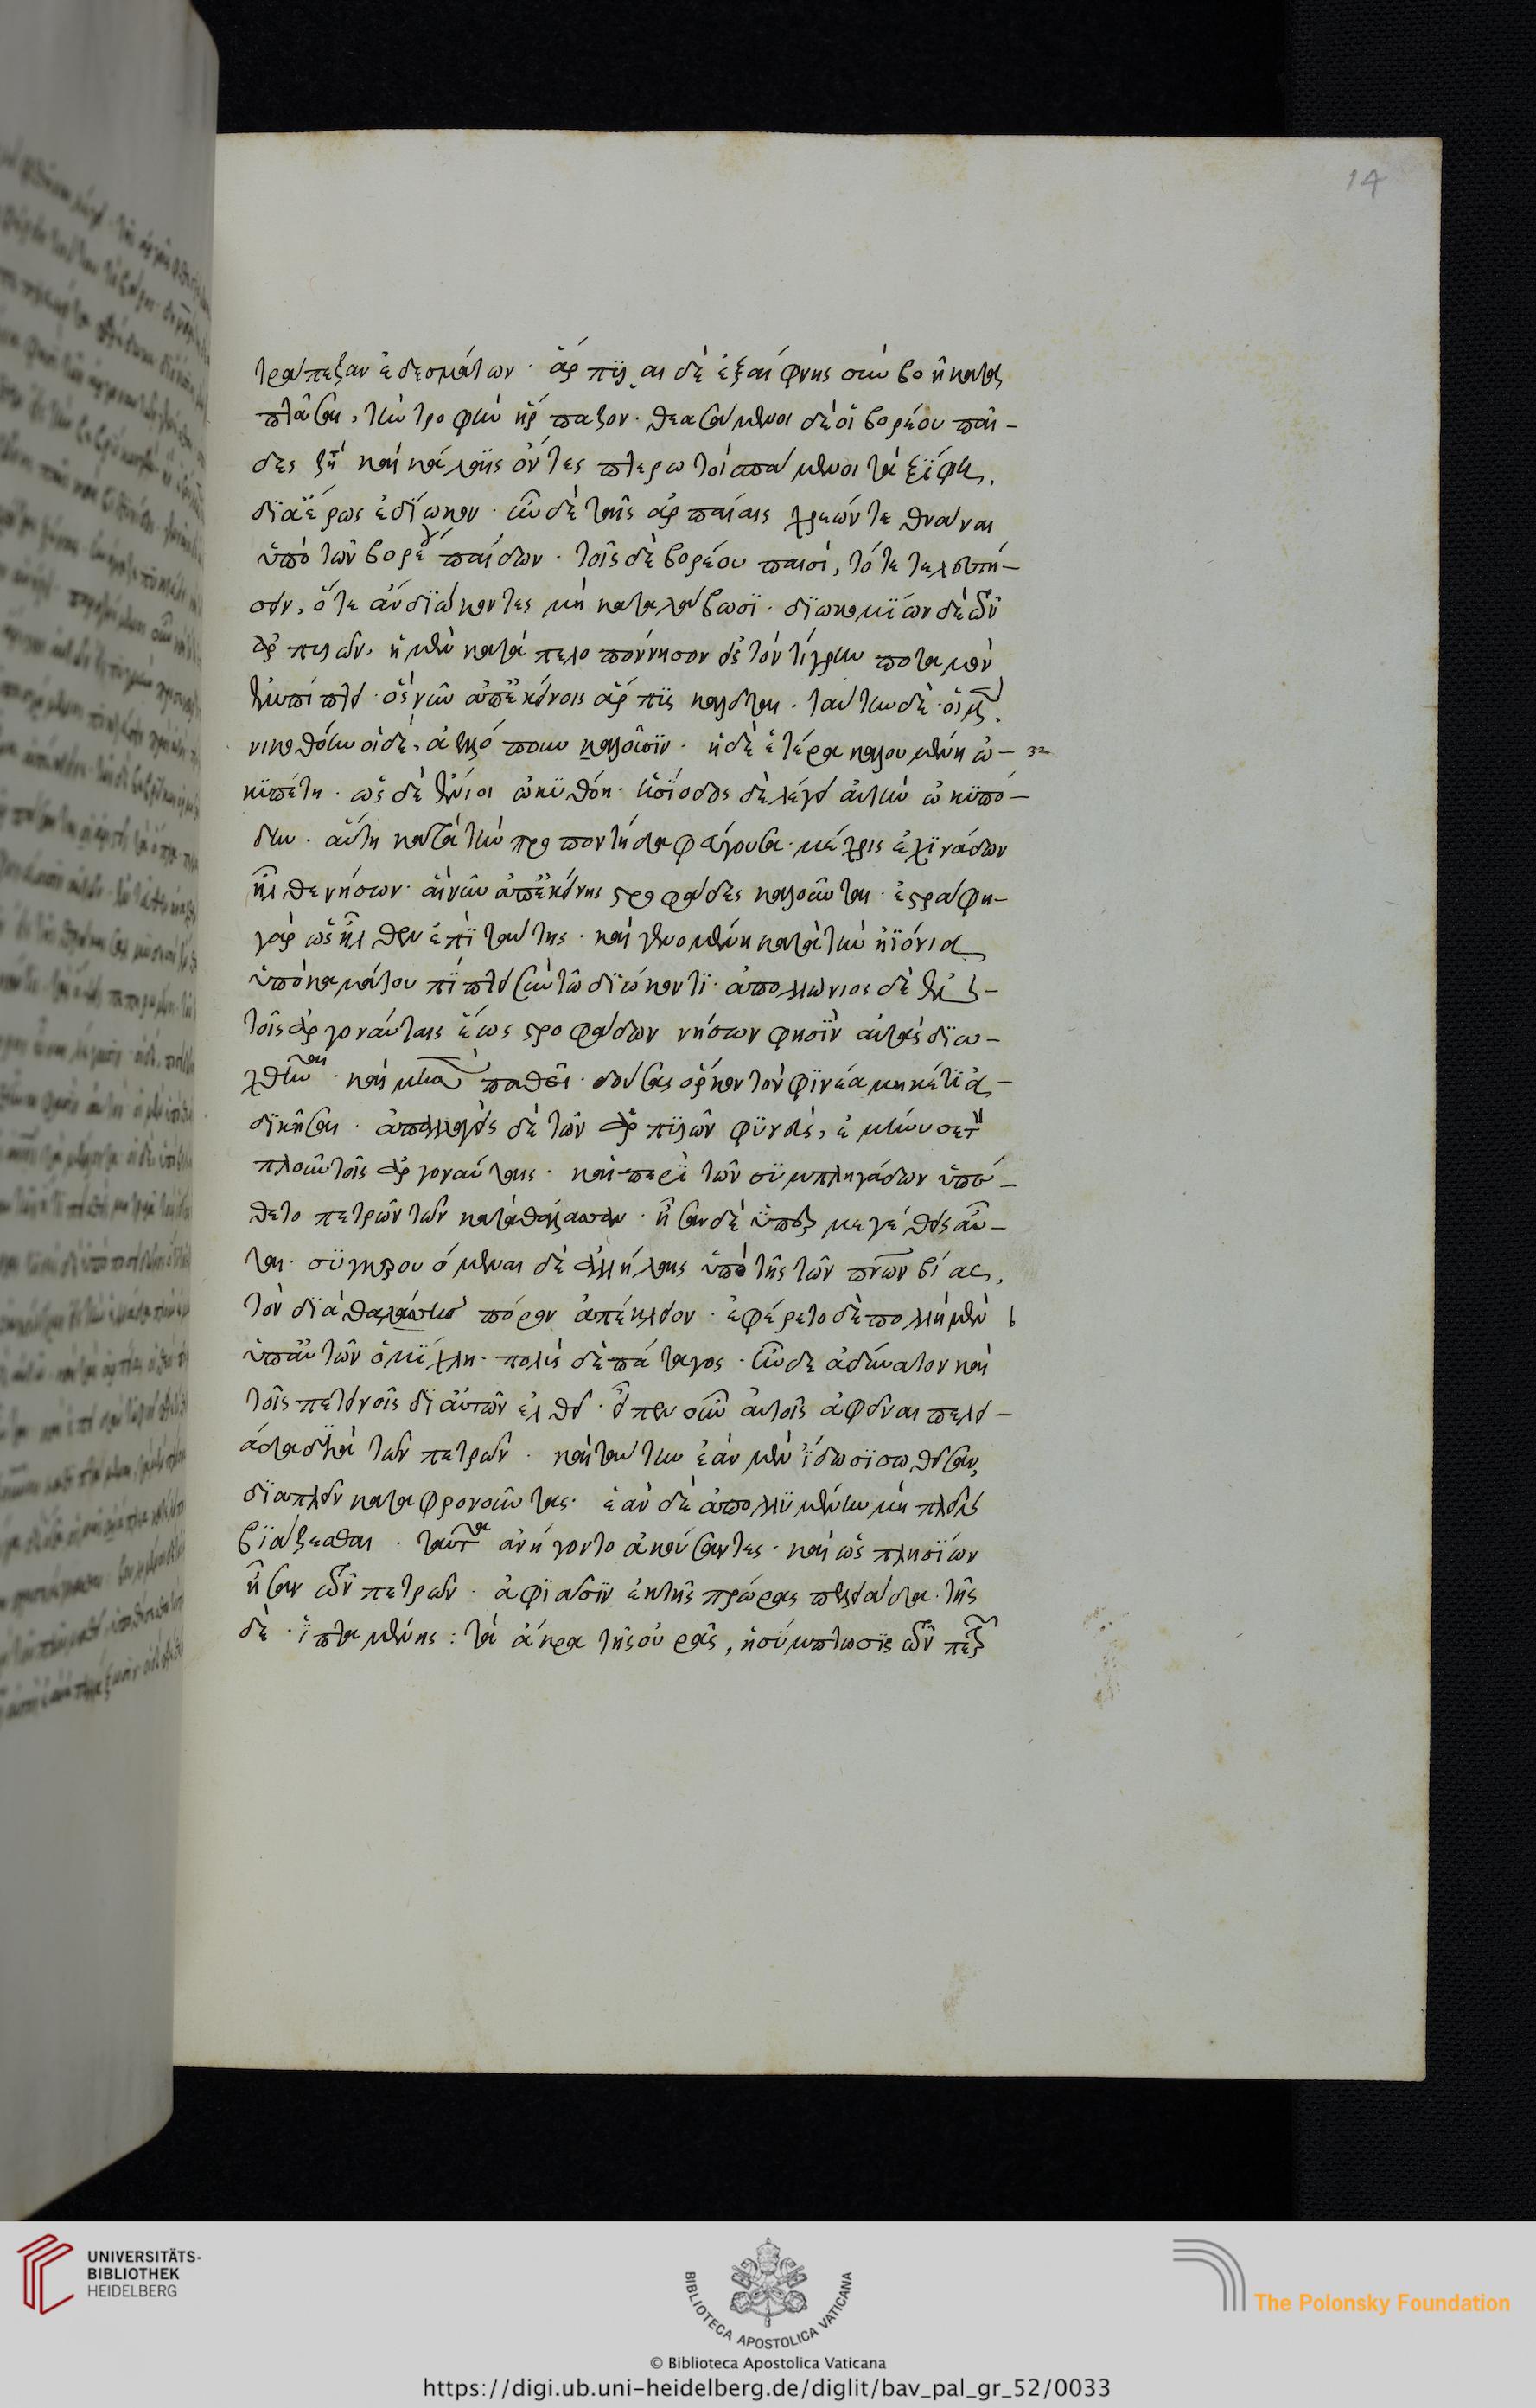 14
τράπεζαν ἐδεσμάτων · ἅρπυιαι δὲ ἐξαίφνης σὺν βοῇ κατα
πτᾶσαι, τὴν τροφὴν ἥρπαζον · θεασάμενοι δὲ οἱ βορέου παῖ-
δες ζήτης καὶ κάλαϊς ὄντες πτερωτοὶ σπασάμενοι τὰ ξίφη,
δι' ἀέρος ἐδίωκον · ἦν δὲ ταῖς ἁρπυίαις χρεὼν τεθνάναι
ὑπὸ τῶν βορέου παίδων · τοῖς δὲ βορέου παισί, τότε τελευτή-
σειν, ὅτε ἂν διώκοντες μὴ καταλάβωσι · διωκομένων δὲ τῶν
ἁρπυιῶν, ἡ μὲν κατὰ πελοπόννησον εἰς τὸν τίγρην ποταμὸν
ἐμπίπτει · ὃς νῦν ἀπ' ἐκείνης ἅρπυς καλεῖται · ταύτην δὲ οἱ μὲν
νικοθόην οἱ δὲ, ἀελλόπουν καλοῦσιν · ἡ δὲ ἑτέρα καλουμένη ὠ-
κυπέτη · ὡς δὲ ἔνιοι ὠκυθόη · ἡσίοδος δὲ λέγει αὐτὴν ὠκυπό-
δην · αὕτη κατὰ τὴν προποντίδα φεύγουσα · μέχρις ἐχινάδων
ἦλθε νήσων · αἳ νῦν ἀπ' ἐκείνης στροφάδες καλοῦνται · ἐστράφη
γὰρ ὡς ἦλθεν ἐπὶ ταύτης · καὶ γενομένη κατὰ τὴν ἠϊόνα
ὑπὸ καμάτου πίπτει σὺν τῷ διώκοντι · ἀπολλώνιος δὲ ἐν
τοῖς ἀργοναύταις ἕως στροφάδων νήσων φησὶν αὐτὰς διω-
χθῆναι · καὶ μηδὲν παθεῖν · δούσας ὅρκον τὸν φινέα μηκέτι ἀ-
δικῆσαι · ἀπαλλαγεὶς δὲ τῶν ἁρπυιῶν φινεὺς, ἐμήνυσε τὸν
πλοῦν τοῖς ἀργοναύταις · καὶ περὶ τῶν συμπληγάδων ὑπέ-
θετο πετρῶν τῶν κατὰ θάλασσαν · ἦσαν δὲ ὑπερμεγέθεις αὗ-
ται · συγκρουόμεναι δὲ ἀλλήλαις ὑπὸ τῆς τῶν πνευμάτων βίας,
τὸν διὰ θαλάσσης πόρον ἀπέκλειον · ἐφέρετο δὲ πολλὴ μὲν
ὑπ' αὐτῶν ὁμίχλη · πολὺς δὲ πάταγος · ἦν δὲ ἀδύνατον καὶ
τοῖς πετεινοῖς δι' αὐτῶν ἐλθεῖν · εἶπεν οὖν αὐτοῖς ἀφεῖναι πελει-
άδα διὰ τῶν πετρῶν · καὶ ταύτην ἐὰν μὲν ἴδωσι σωθεῖσαν,
διαπλεῖν καταφρονοῦντας · ἐὰν δὲ ἀπολλυμένην μὴ πλεῖν
βιάζεσθαι · ταῦτα ἀνήγοντο ἀκούσαντες · καὶ ὡς πλησίον
ἦσαν τῶν πετρῶν · ἀφιᾶσιν ἐκ τῆς πρώρας πελειάδα · τῆς
δὲ · ἱπταμένης : τὰ ἄκρα τῆς οὐρᾶς, ἡ σύμπτωσις τῶν πετρῶν
UNIVERSITÄTS-
BIBLIOTHEK
HEIDELBERG
BIBLIOTECA APOSTOLICA VATICANA
© Biblioteca Apostolica Vaticana
The Polonsky Foundation
https://digi.ub.uni-heidelberg.de/diglit/bav_pal_gr_52/0033